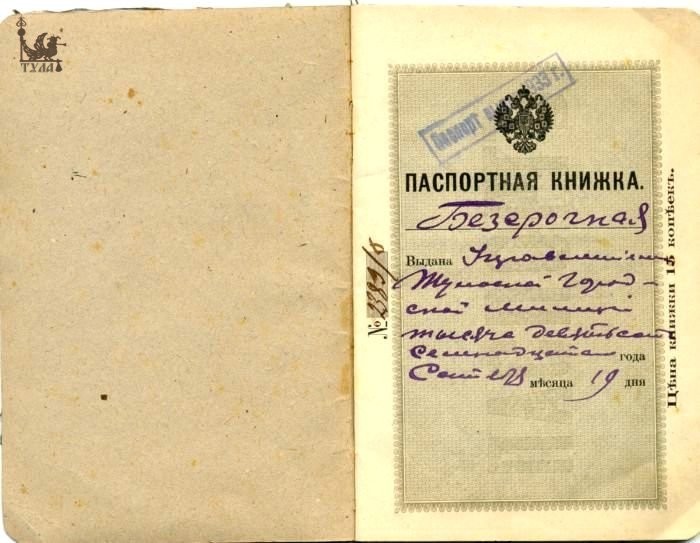 ТУЛА
Паспорт 1933 г.
ПАСПОРТНАЯ КНИЖКА.
Безсрочная
Выдана Управлениемъ
Тульской Город-
ской милиціи
тысяча девятьсотъ
семнадцатаго года
Сентября мѣсяца 19 дня
№ 2389/б
Цѣна книжки 15 копѣекъ.